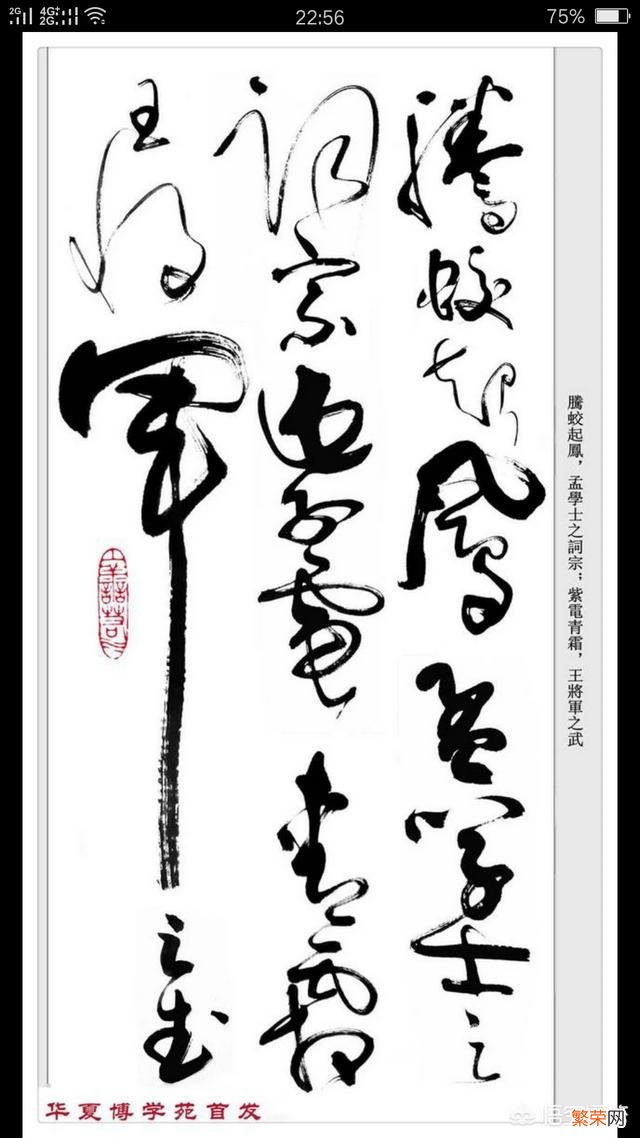 2G 4G+ 2G 22:56 75%
騰蛟起鳳孟學士之
詞宗紫電青霜
王將軍之武
騰蛟起鳳，孟學士之詞宗；紫電青霜，王將軍之武
华夏博学苑首发
繁荣网